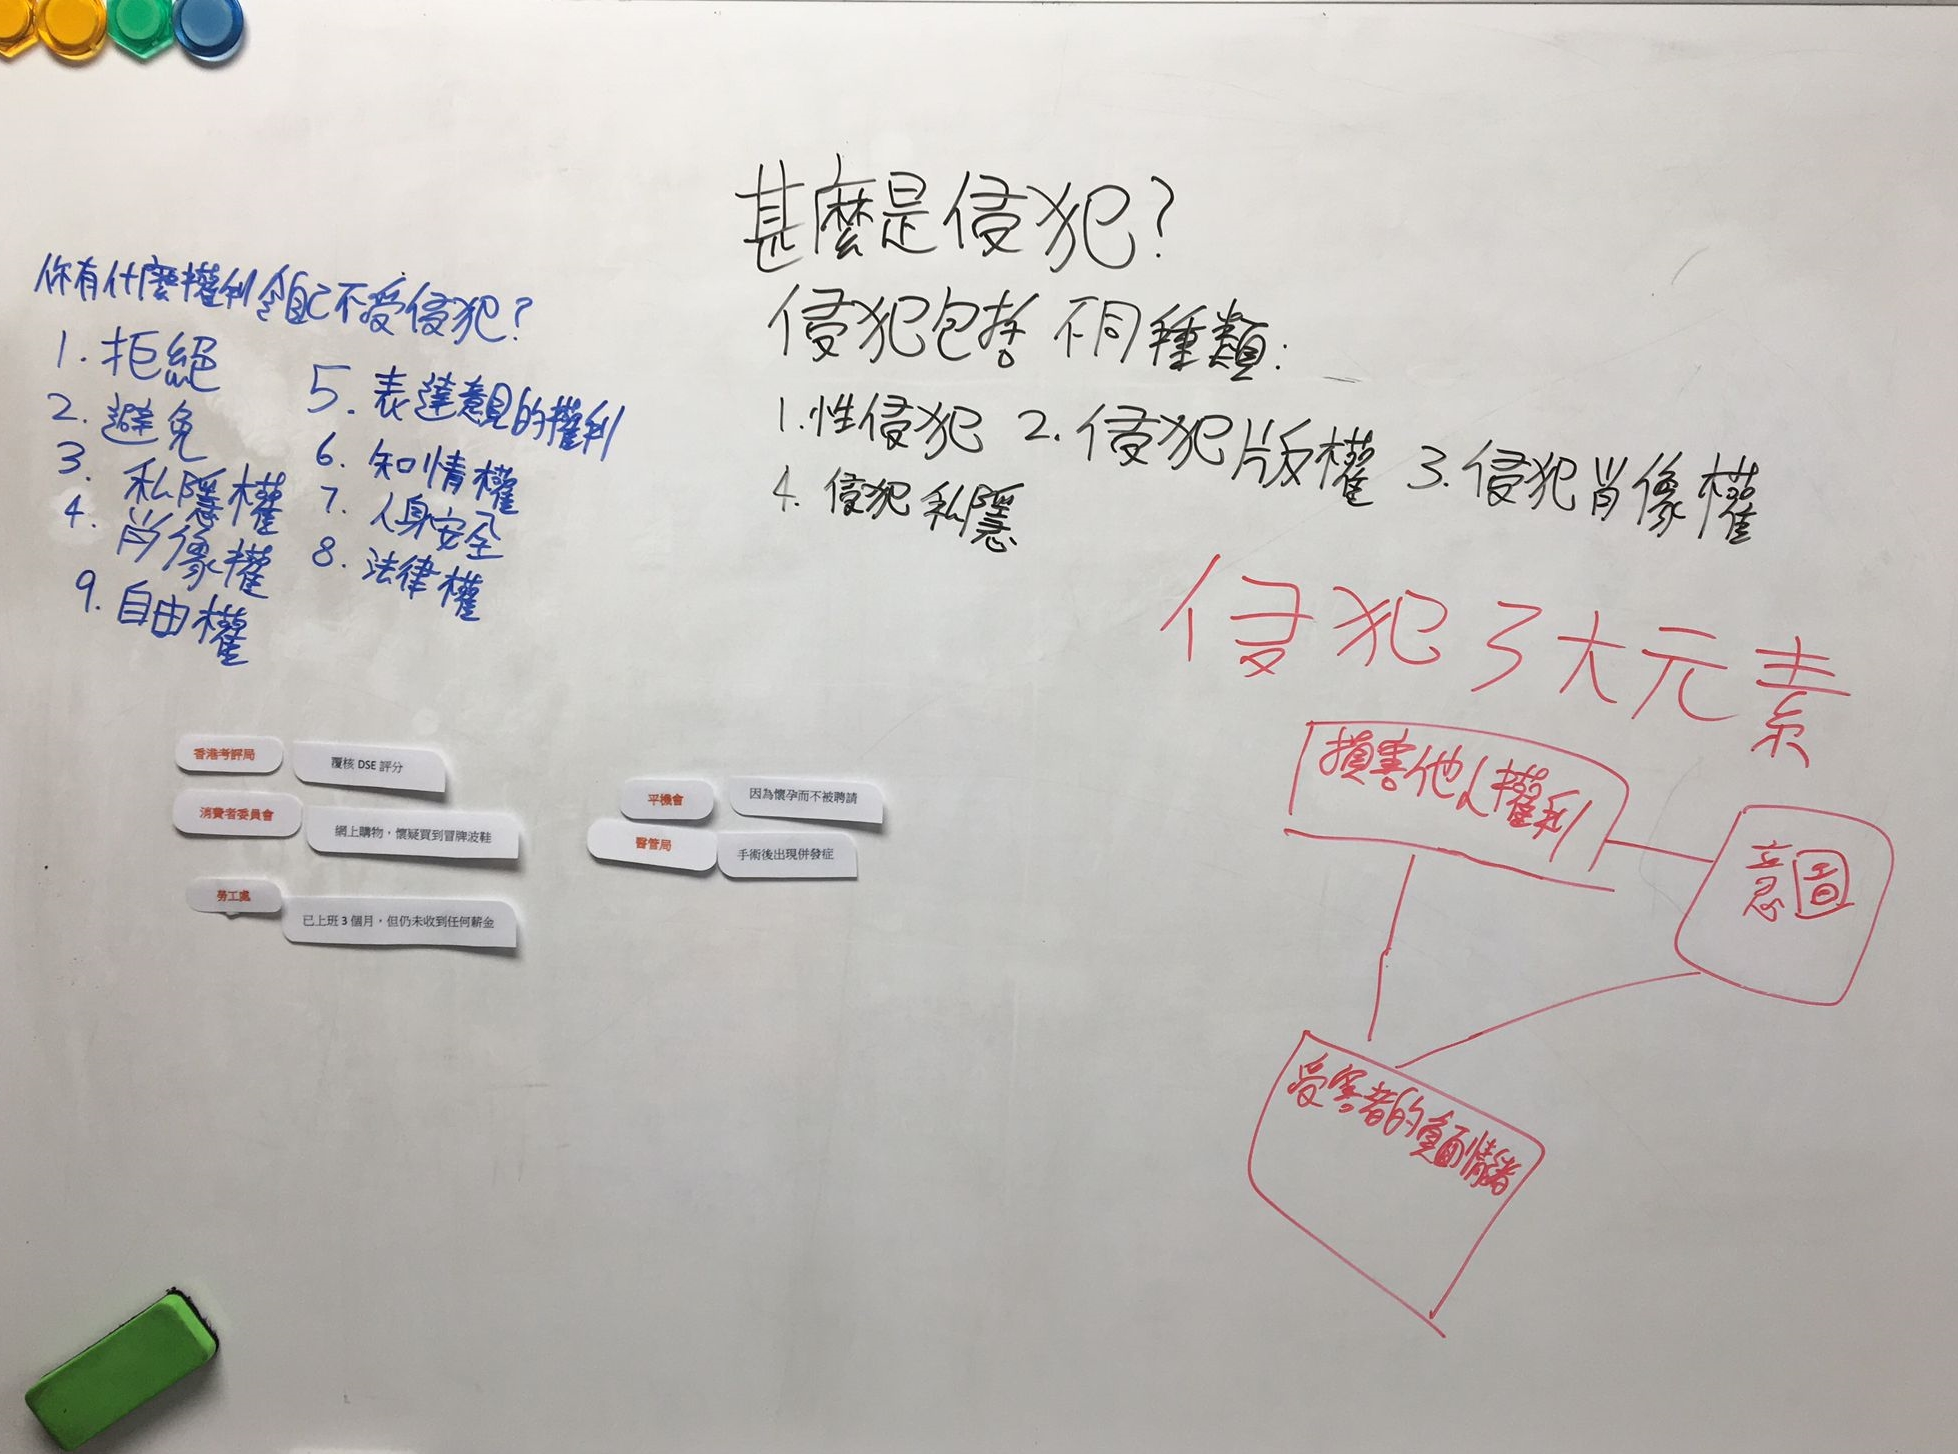 甚麼是侵犯?
侵犯包括不同種類:
1.性侵犯 2.侵犯版權 3.侵犯肖像權
4.侵犯私隱
你有什麼權利令自己不受侵犯?
1.拒絕
2.避免
3.私隱權
4.肖像權
5.表達意見的權利
6.知情權
7.人身安全
8.法律權
9.自由權
侵犯3大元素
損害他人權利
意圖
受害者的負面情緒
香港考評局
覆核 DSE 評分
消費者委員會
網上購物，懷疑買到冒牌波鞋
勞工處
已上班 3 個月，但仍未收到任何薪金
平機會
因為懷孕而不被聘請
醫管局
手術後出現併發症